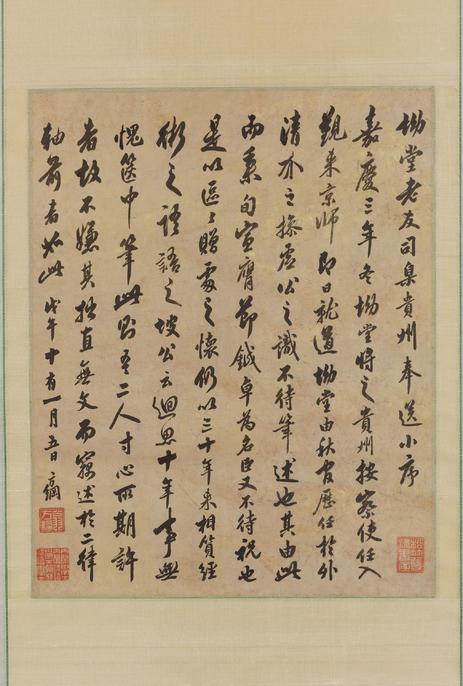 坳堂老友司臬貴州奉送小序
嘉慶三年冬坳堂將之貴州按察使任入
覲來京師即日就道坳堂由秋官歷任於外
清介之操虛公之識不待筆述也其由此
而秉旬宣膺節鉞卓為名臣又不待祝也
是以區〻贈處之懷仍以三十年來相質經
術之語語之坡公云迴思十年事無
愧篋中筆此則吾二人寸心所期許
者故不嫌其拙直無文而竊述於二律
軸前者如此 戊午十有一月五日 方綱